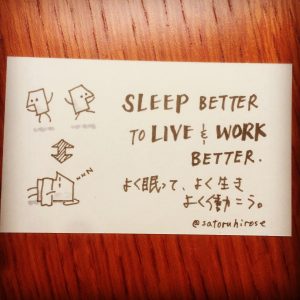 SLEEP BETTER
TO LIVE & WORK
BETTER.
よく眠って、よく生き
よく働こう。
@satoruhirose
zzz